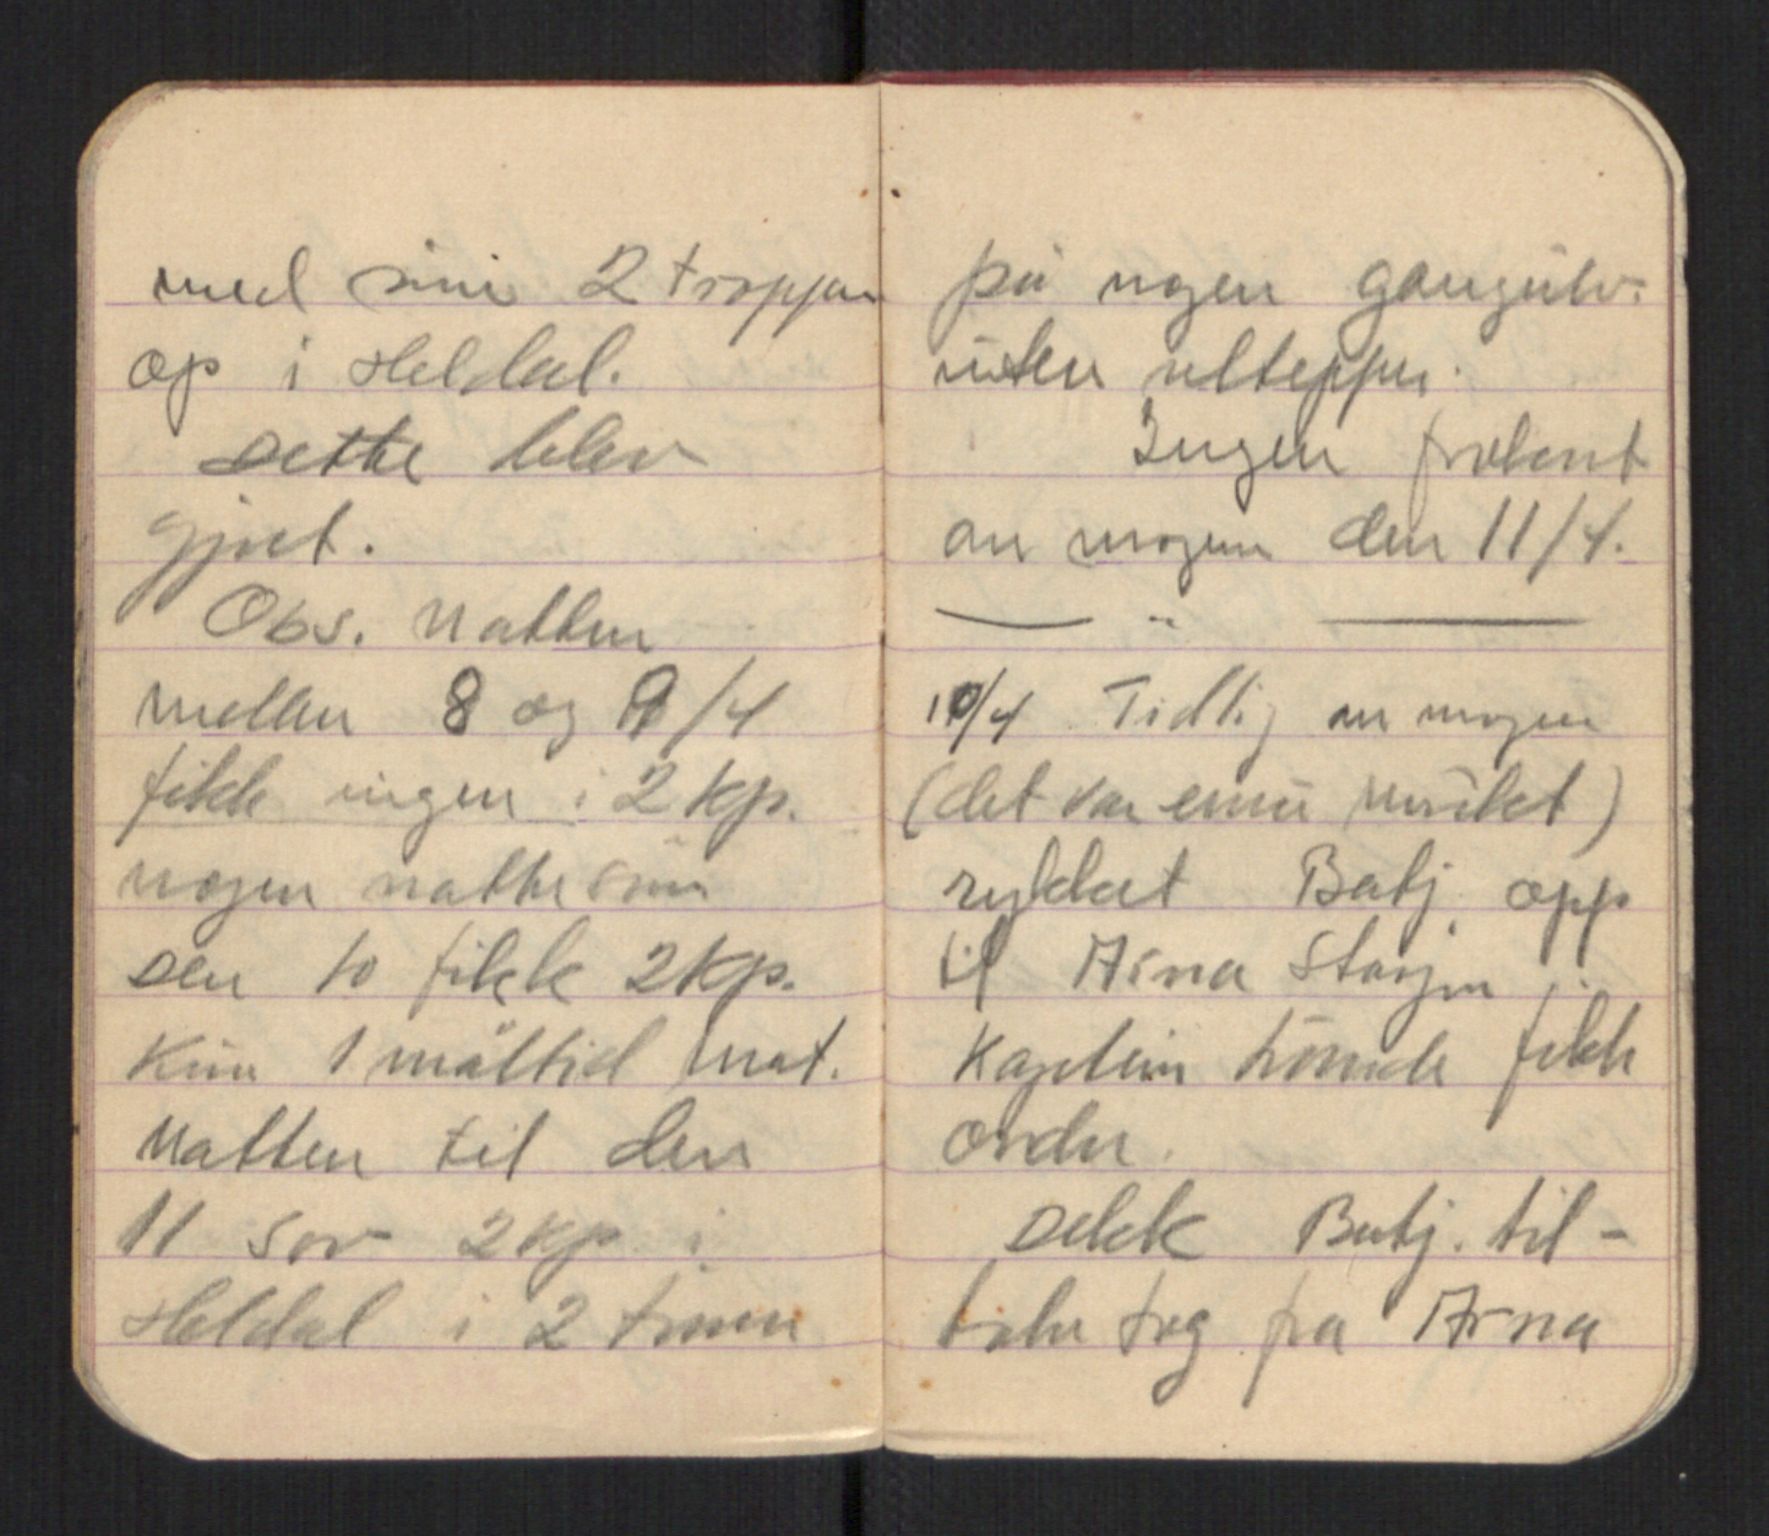 med sine 2 tropper
op i Heldal.
Dette blev
gjort.
Obs. Natten
mellem 8 og 9/4
fikk ingen i 2 kp.
nogen nattesøvn
Den 10 fikk 2 kp.
kun 1 måltid mat.
Natten til den
11 sov 2 kp i
Heldal i 2 timer
på nogen gangulv
uten ulltepper.
Ingen frokost
om morgenen den 11/4.
— " —
10/4 Tidlig om morgen
(det var ennu mørket)
rykket Batj. opp
til Arna Stasjon
Kaptein fikk
ordre.
Dekk Batj. til-
toget fra Arna